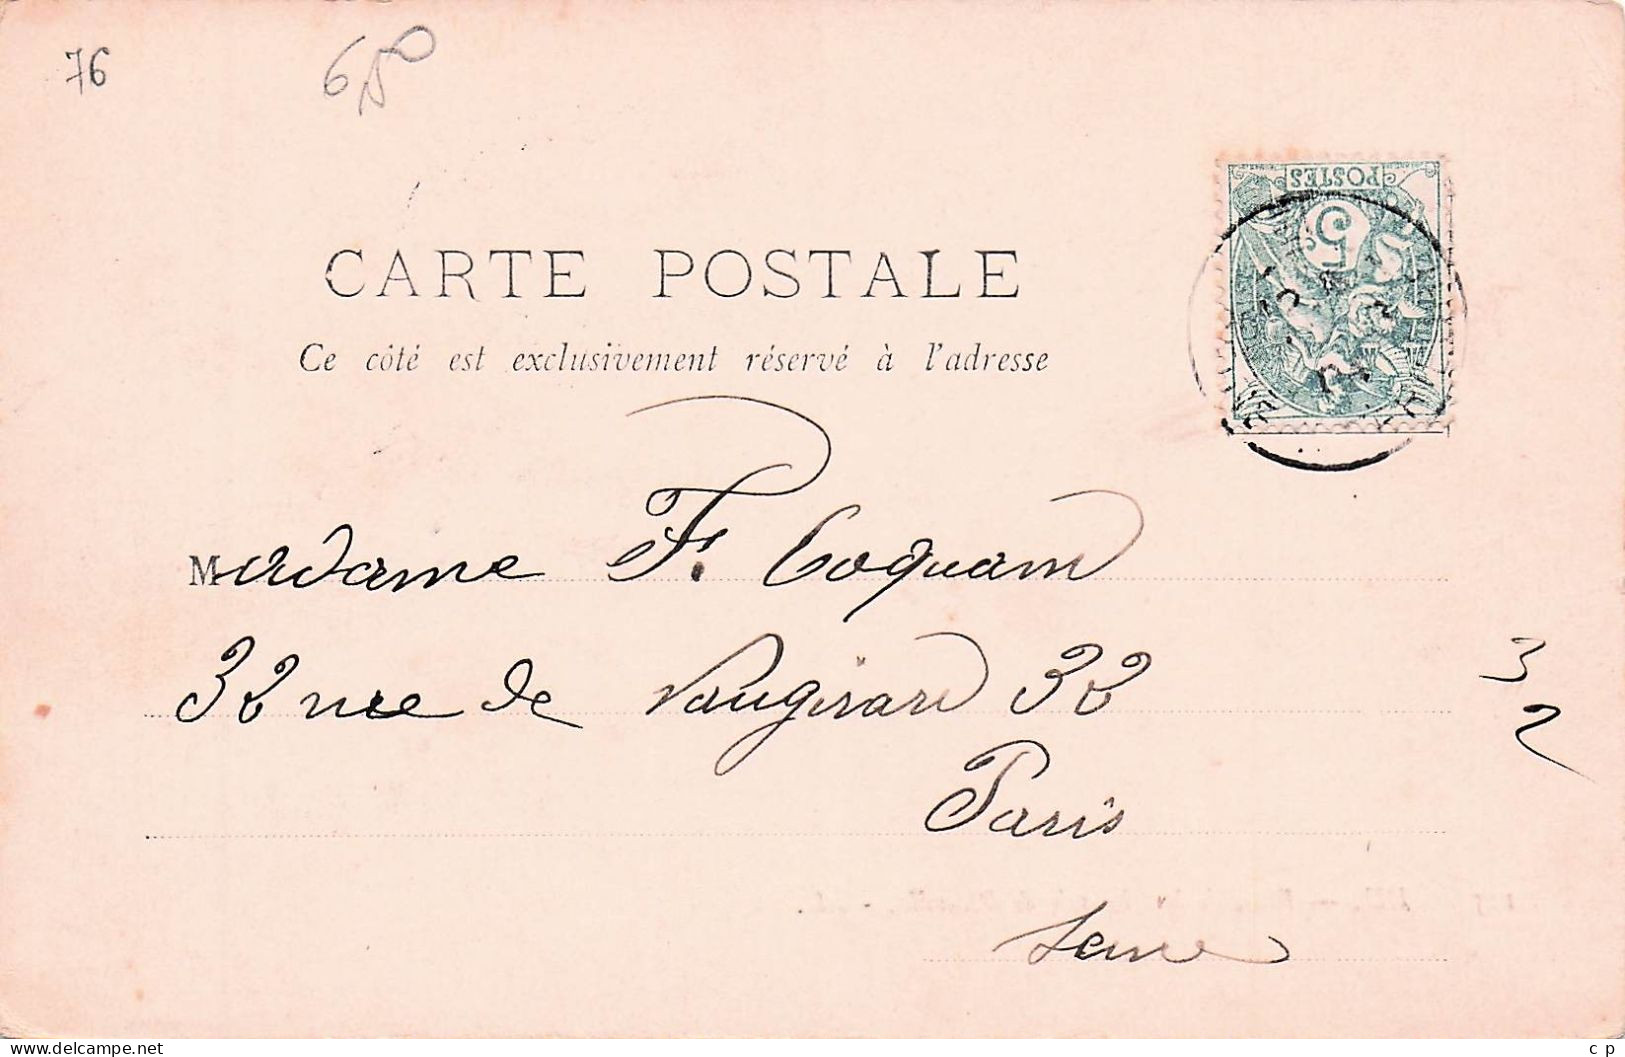 76
650
POSTES
5
CARTE POSTALE
Ce côté est exclusivement réservé à l'adresse
Madame F. Coquam
32 rue de Vaugirard 32
3
2
Paris
Seine
www.delcampe.net
c p